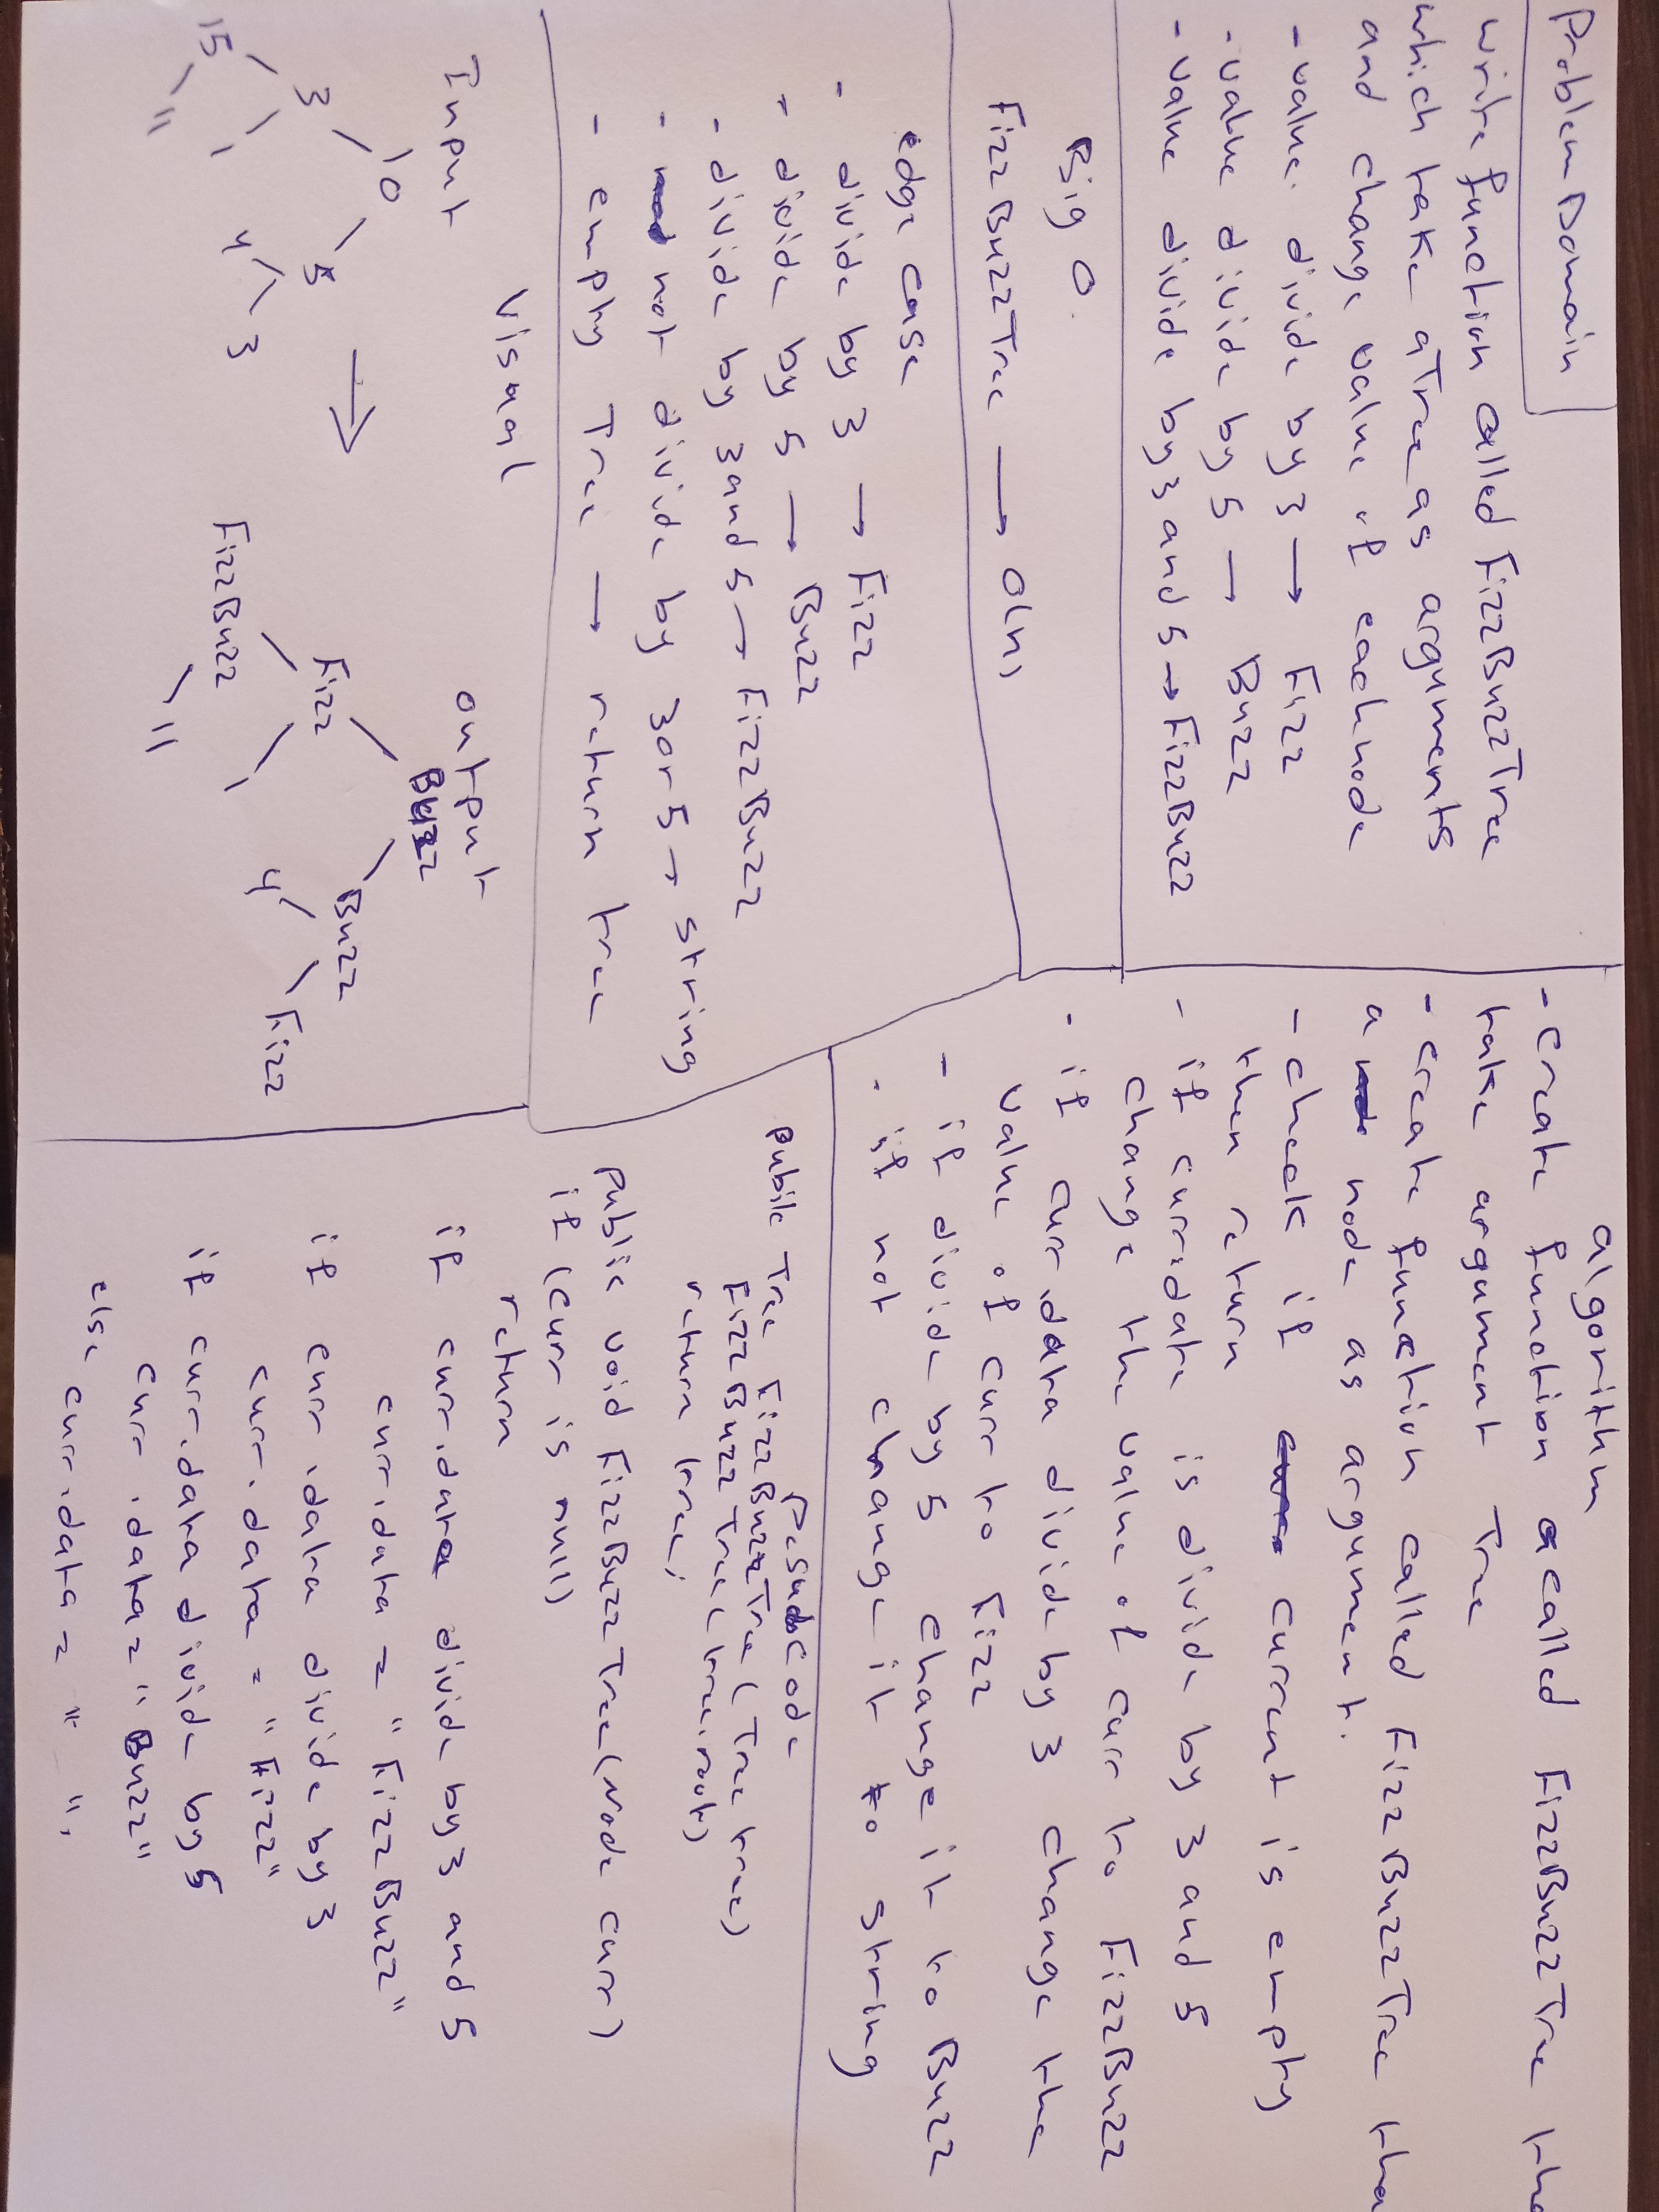 Problem Domain
write function called FizzBuzzTree
which take a Tree as arguments
and change value of each node
- value divide by 3 → Fizz
- value divide by 5 → Buzz
- value divide by 3 and 5 → FizzBuzz
Big O
FizzBuzzTree → O(n)
edge case
- divide by 3 → Fizz
- divide by 5 → Buzz
- divide by 3 and 5 → FizzBuzz
- not divide by 3 or 5 → string
- empty Tree → return tree
Visual
Input
10
3 5
15 1 4 3
11
output
Buzz
Fizz Buzz
FizzBuzz 1 4 Fizz
11
algorithm
- create function called FizzBuzzTree tha
take argument Tree
- create function called FizzBuzzTree tha
a node as argument.
- check if current is empty
then return
- if curr.date is divide by 3 and 5
change the value of curr to FizzBuzz
- if curr.data divide by 3 change the
value of curr to Fizz
- if divide by 5 change it to Buzz
- if not change it to string
Pesudocode
pubilc Tree FizzBuzzTree ( Tree tree)
FizzBuzzTree (tree.root)
return tree;
public void FizzBuzzTree(Node curr)
if (curr is null)
return
if curr.data divide by 3 and 5
curr.data = "FizzBuzz"
if curr.data divide by 3
curr.data = "Fizz"
if curr.data divide by 5
curr.data = "Buzz"
else
curr.data = " ";